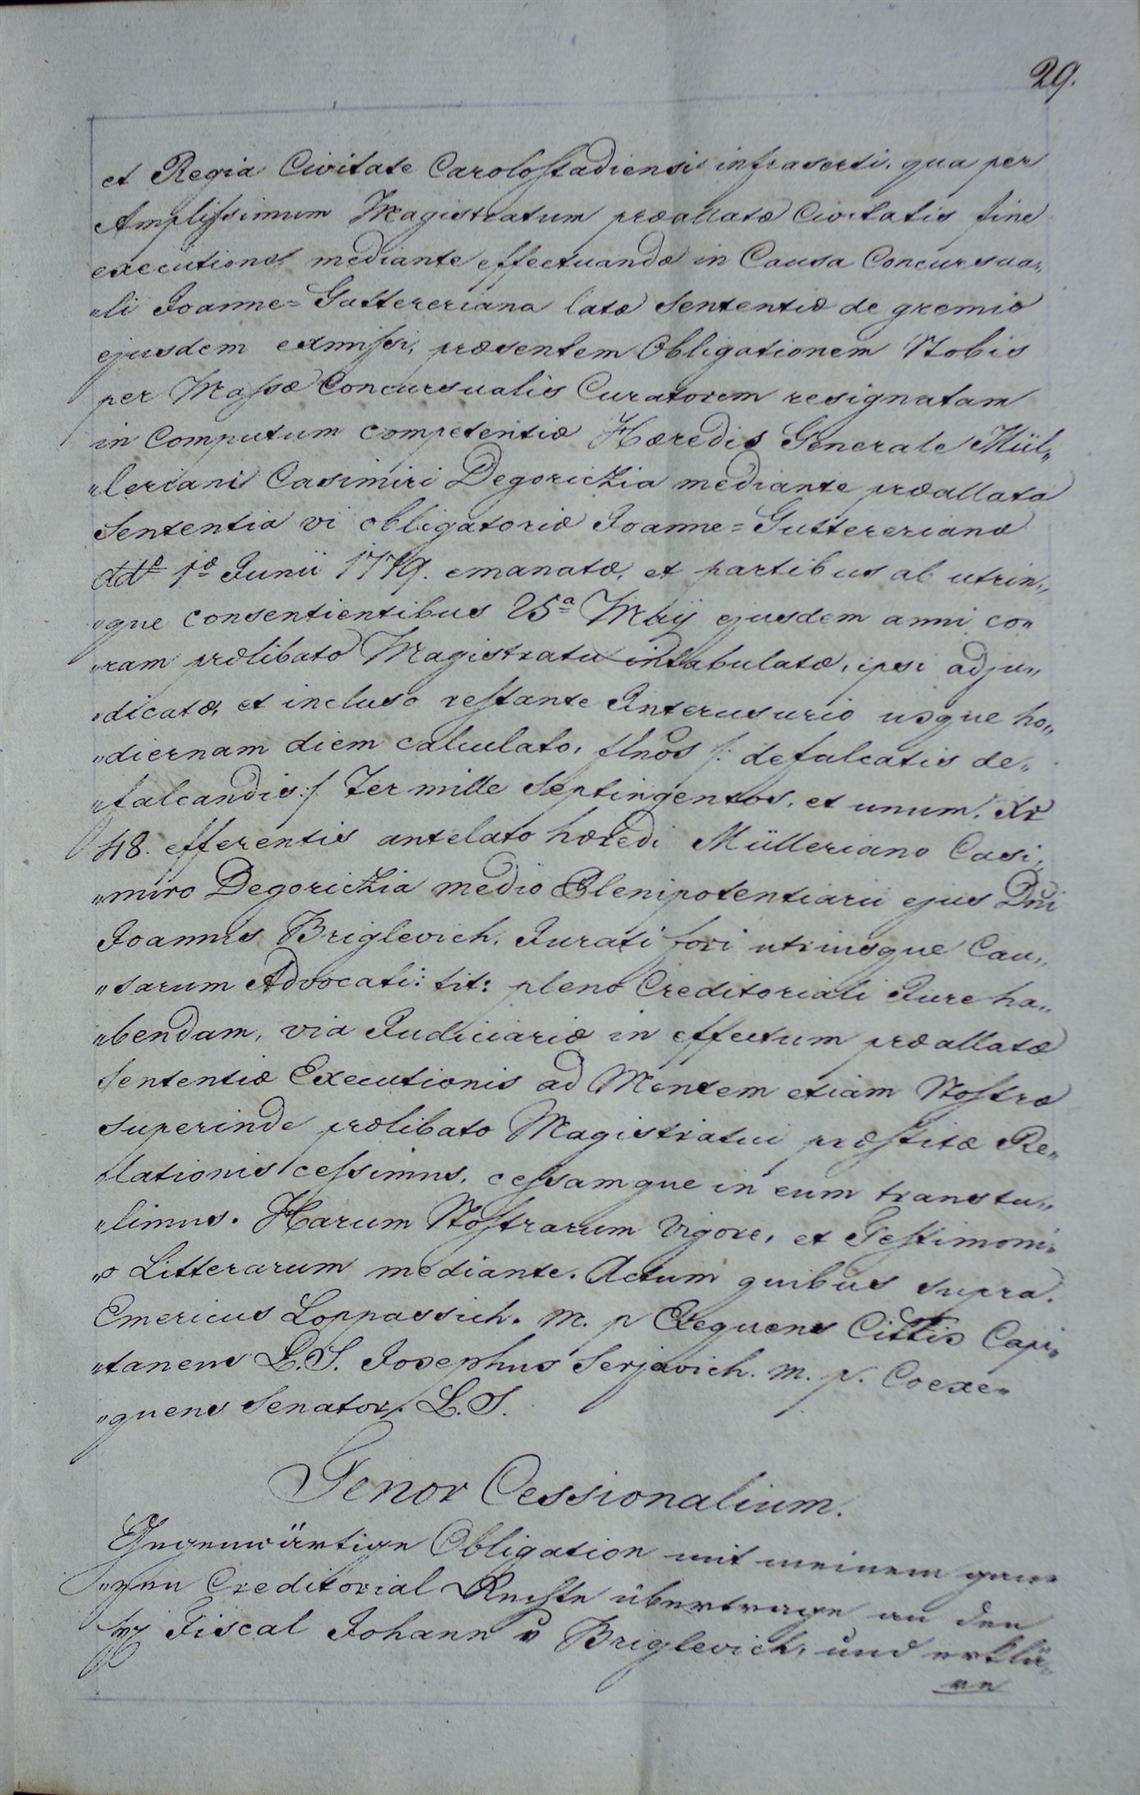 29.
et Regia Civitate Carolostadiensi infraserti, qua per
Amplissimum Magistratum præallatæ Civitatis fine
executionis mediante effectuandæ in Causa Concursua„
„li Joanne=Guttereriana latæ Sententiæ de gremio
ejusdem exmissi, præsentem Obligationem Nobis
per Massæ Concursualis Curatorem resignatam
in Computum competentiæ Hæredis Generale Mül„
„leriani Casimiri Degoriczia mediante præallata
Sententia vi obligatoriæ Joanne=Guttereriana
ddº 1ª Junii 1779. emanatæ, et partibus ab utrin„
„que consentientibus 25ª Maÿ ejusdem anni co„
„ram prælibato Magistratu intabulatæ, ipsi adju„
„dicatæ, et incluso restante Interusurio usque ho„
„diernam diem calculato, flnos /: defalcatis de„
„falcandis :/ Ter mille Septingentos, et unum, Xr
48. efferentis antelato hæredi Mülleriano Casi„
„miro Degoriczia medio Plenipotentiarii ejus Dni
Joannis Briglevich, Jurati fori utriusque Cau„
„sarum Advocati: tit: pleno Creditoriali Jure ha„
„bendam, via Judiciariæ in effectum præallatæ
Sententiæ Executionis ad Mentem etiam Nostræ
superinde prælibato Magistratui præstitæ Re„
„lationis cessimus, cessamque in eum transtu„
„limus. Harum Nostrarum Vigore, et Testimoni„
„o Litterarum mediante. Actum quibus supra.
Emericus Loppassich. m. p Exequens Cittis Capi„
„taneus L.S. Josephus Serjavich. m. p. Coexe„
„quens Senator. L.S.
Tenor Cessionalium.
Gegenwärtige Obligation mit meinem gan„
„zen Creditorial Rechte übertrage an den
H Fiscal Johann v Briglevich, und erklä„
re